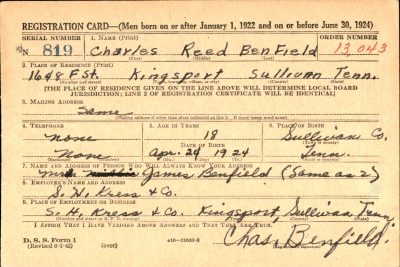 REGISTRATION CARD—(Men born on or after January 1, 1922 and on or before June 30, 1924)
SERIAL NUMBER 1. NAME (Print) ORDER NUMBER
N 819 Charles Reed Benfield 13,043
(First) (Middle) (Last)
2. PLACE OF RESIDENCE (Print)
1648 F St. Kingsport Sullivan Tenn.
[THE PLACE OF RESIDENCE GIVEN ON THE LINE ABOVE WILL DETERMINE LOCAL BOARD
JURISDICTION; LINE 2 OF REGISTRATION CERTIFICATE WILL BE IDENTICAL]
3. MAILING ADDRESS
Same
[Mailing address if other than place indicated on line 2. If same insert word same]
4. TELEPHONE 5. AGE IN YEARS 6. PLACE OF BIRTH
None 18 Sullivan Co.
DATE OF BIRTH
None Apr. 29 1924 Tenn.
(Exchange) (Number) (Mo.) (Day) (Yr.) (State or country)
7. NAME AND ADDRESS OF PERSON WHO WILL ALWAYS KNOW YOUR ADDRESS
James Benfield (Same as 2)
8. EMPLOYER'S NAME AND ADDRESS
S. H. Kress & Co.
9. PLACE OF EMPLOYMENT OR BUSINESS
S. H. Kress & Co. Kingsport, Sullivan Tenn.
I AFFIRM THAT I HAVE VERIFIED ABOVE ANSWERS AND THAT THEY ARE TRUE.
D. S. S. Form 1
(Revised 6-9-42) (over) Chas. Benfield